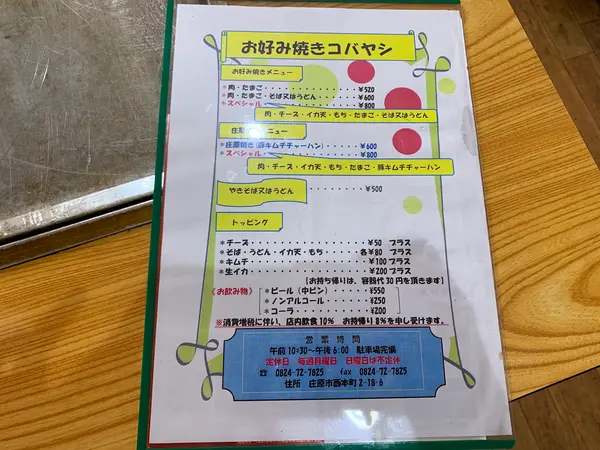 お好み焼きコバヤシ
お好み焼きメニュー
*肉・たまご・・・・・・・・・・・¥520
*肉・たまご・そば又はうどん・・・・・¥600
*スペシャル・・・・・・・・・・・¥800
肉・チーズ・イカ天・もち・たまご・そば又はうどん
メニュー
*庄原焼き(豚キムチチャーハン)・・・・¥600
*スペシャル・・・・・・・・・・・¥800
肉・チーズ・イカ天・もち・たまご・豚キムチチャーハン
やきそば又はうどん・・・・・・・・¥500
トッピング
*チーズ・・・・・・・・・・・・¥50 プラス
*そば・うどん・イカ天・もち・・・・各¥80 プラス
*キムチ・・・・・・・・・・・・¥100 プラス
*生イカ・・・・・・・・・・・・¥200 プラス
【お持ち帰りは、容器代30円を頂きます】
(お飲み物) *ビール(中ビン)・・・・¥550
*ノンアルコール・・・・¥250
*コーラ・・・・・・・¥200
※消費増税に伴い、店内飲食10% お持帰り8%を申し受けます。
営業時間
午前10:30~午後6:00 駐車場完備
定休日 毎週月曜日 日曜日は不定休
☎ 0824-72-7825 fax 0824-72-7825
住所 庄原市西本町2-18-6